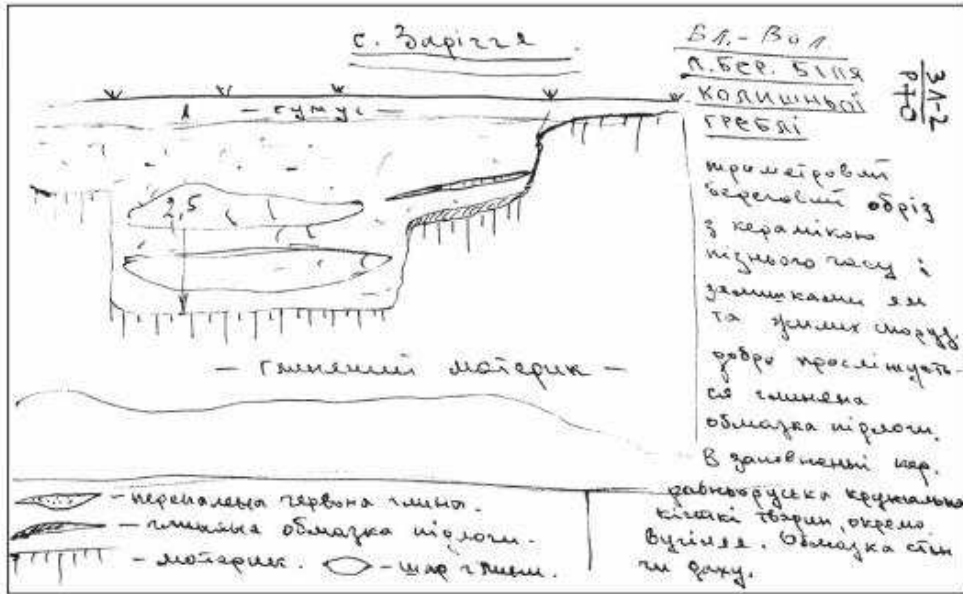 с. Заріччя
БЛ.-ВОЛ.
Л.БЕР. БІЛЯ
КОЛИШНЬОЇ
ГРЕБЛІ
ЗЛ-2
1 - гумус -
2,5
триметровий
береговий обріз
з керамікою
пізнього часу і
залишками ям
та жилих споруд.
добре прослідкують-
ся глиняна
обмазка підлоги.
В заповненні кер.
давньоруська кружальна
кістки тварин, окремо
вугілля. Обмазка стін
чи даху.
- глиняний материк -
- перепалена червона глина.
- глиняна обмазка підлоги.
- материк.
- шар глини.